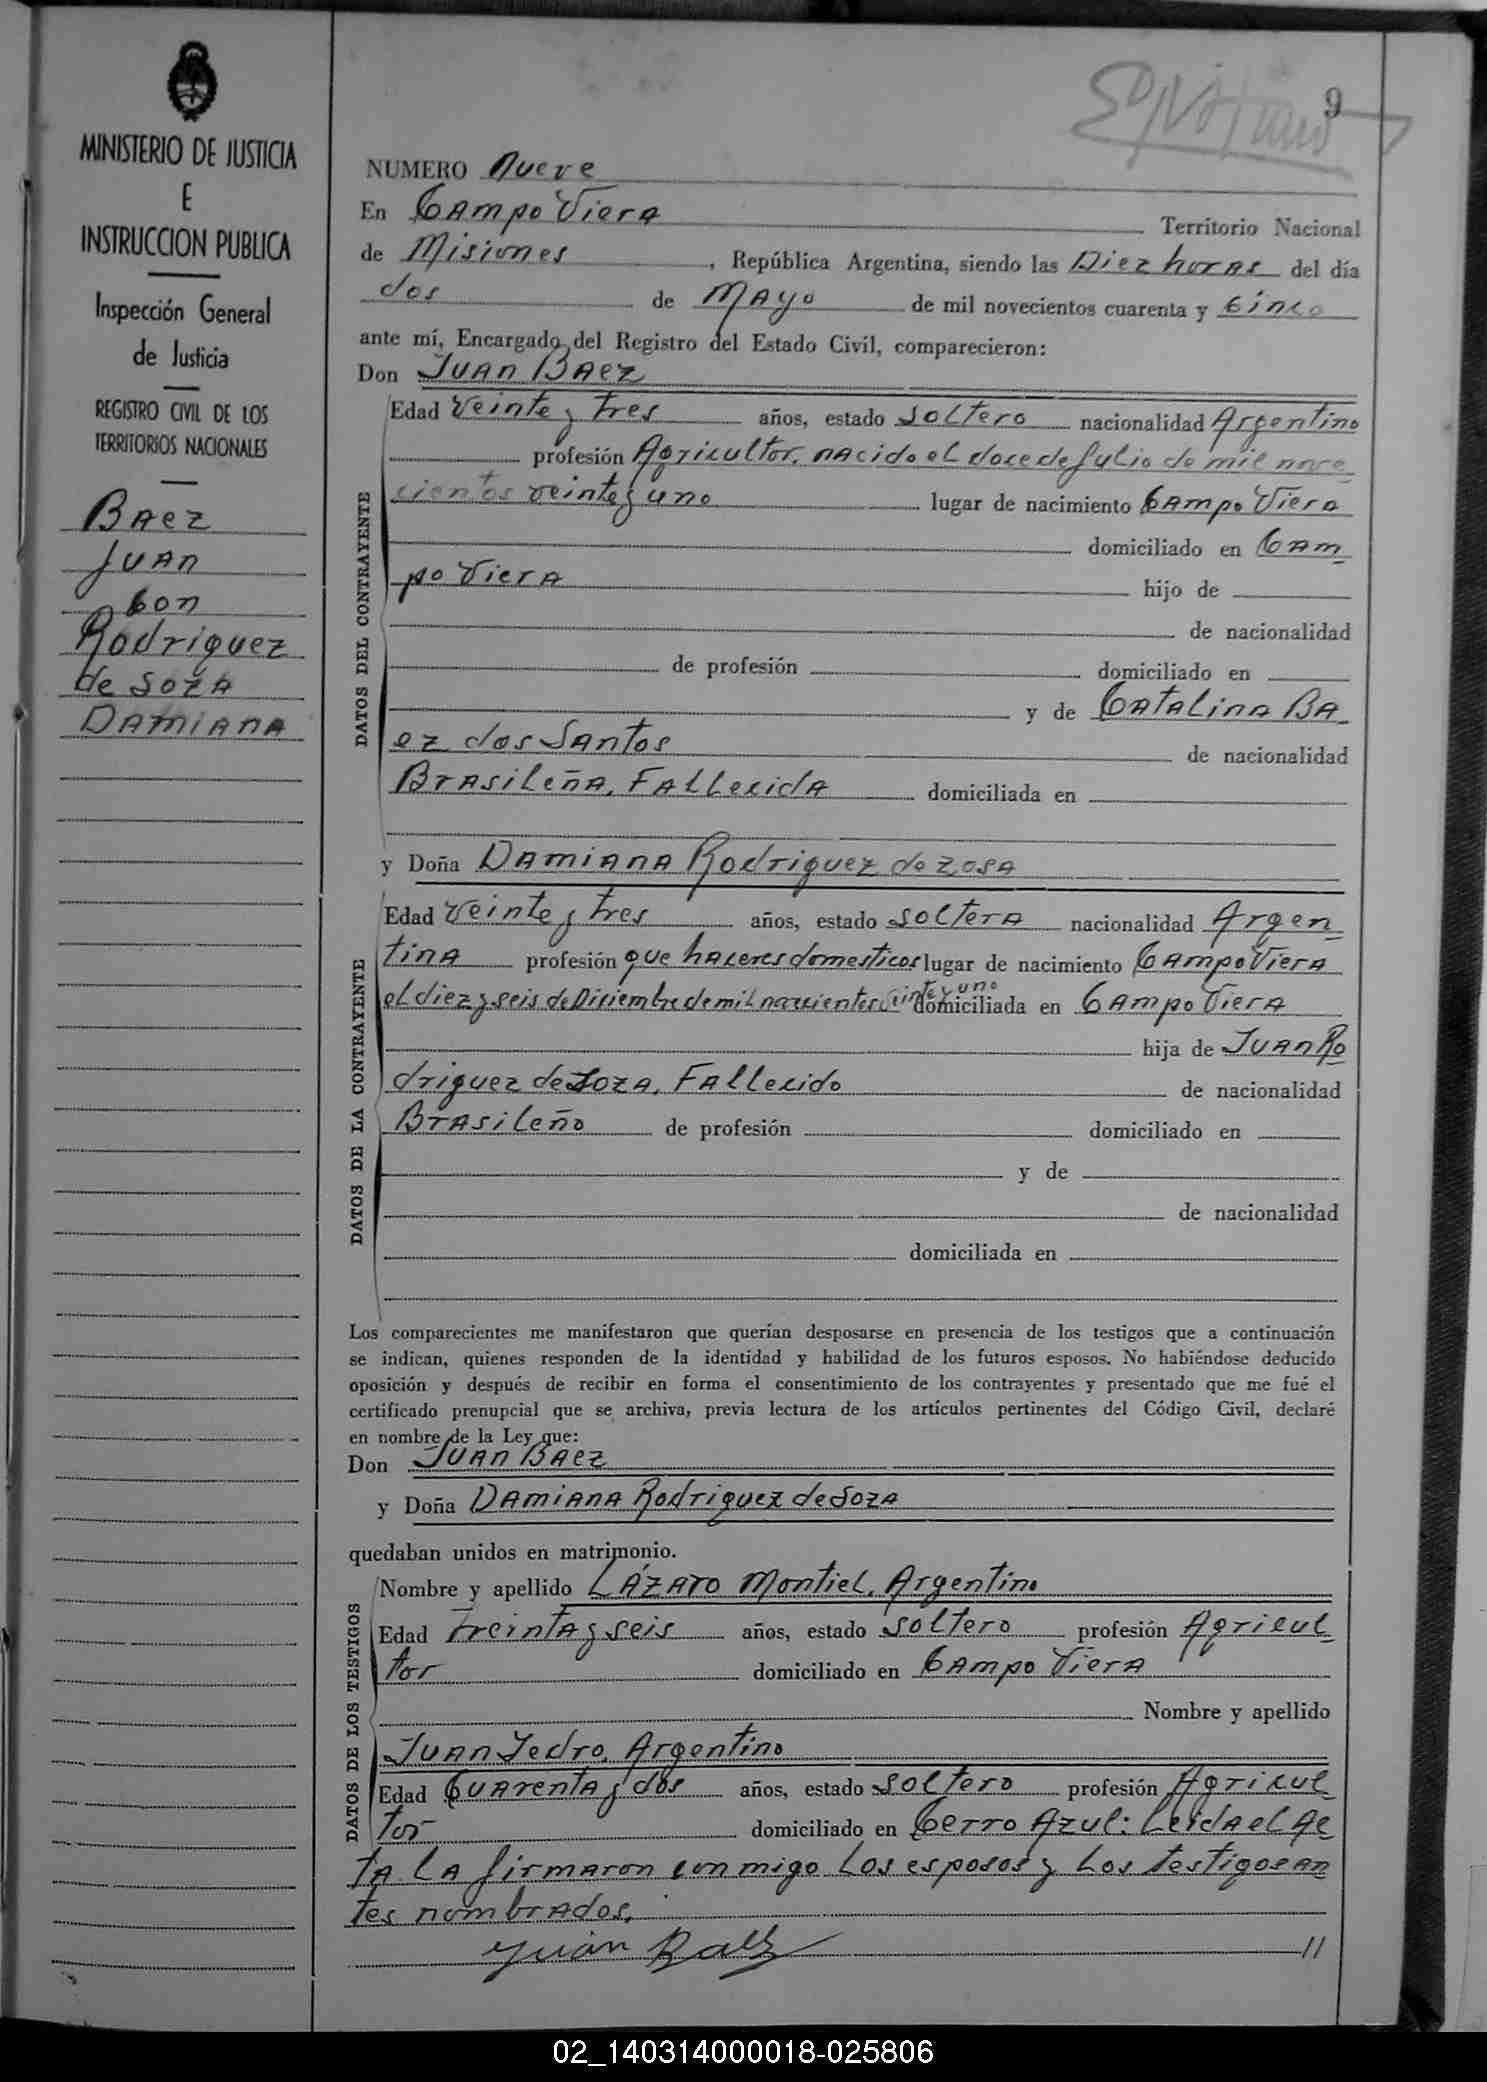 MINISTERIO DE JUSTICIA
E
INSTRUCCION PUBLICA
Inspección General
de Justicia
REGISTRO CIVIL DE LOS
TERRITORIOS NACIONALES
Baez
Juan
con
Rodriguez
de Soza
Damiana
9
NUMERO Nueve
En Campo Viera Territorio Nacional
de Misiones, República Argentina, siendo las Diez horas del día
dos de Mayo de mil novecientos cuarenta y cinco
ante mí, Encargado del Registro del Estado Civil, comparecieron:
Don Juan Baez
DATOS DEL CONTRAYENTE
Edad veinte y tres años, estado soltero nacionalidad Argentino
profesión Agricultor, nacido el doce de Julio de mil nove
cientos veinte y uno lugar de nacimiento Campo Viera
domiciliado en Cam
po Viera hijo de
de nacionalidad
de profesión domiciliado en
y de Catalina Ba
ez dos Santos de nacionalidad
Brasileña, Fallecida domiciliada en
y Doña Damiana Rodriguez de Zosa
DATOS DE LA CONTRAYENTE
Edad veinte y tres años, estado soltera nacionalidad Argen
tina profesión que haceres domesticos lugar de nacimiento Campo Viera
el diez y seis de Diciembre de mil novecientos veinte y uno domiciliada en Campo Viera
hija de Juan Ro
driguez de Soza, Fallecido de nacionalidad
Brasileño de profesión domiciliado en
y de
de nacionalidad
domiciliada en
Los comparecientes me manifestaron que querían desposarse en presencia de los testigos que a continuación
se indican, quienes responden de la identidad y habilidad de los futuros esposos. No habiéndose deducido
oposición y después de recibir en forma el consentimiento de los contrayentes y presentado que me fué el
certificado prenupcial que se archiva, previa lectura de los artículos pertinentes del Código Civil, declaré
en nombre de la Ley que:
Don Juan Baez
y Doña Damiana Rodriguez de Soza
quedaban unidos en matrimonio.
DATOS DE LOS TESTIGOS
Nombre y apellido Lázaro Montiel, Argentino
Edad treinta y seis años, estado soltero profesión Agricul
tor domiciliado en Campo Viera
Nombre y apellido
Juan Tedro, Argentino
Edad Cuarenta y dos años, estado soltero profesión Agricul
tor domiciliado en Cerro Azul: Leida el Ac
ta la firmaron conmigo los esposos y los testigos an
tes nombrados.
Juan Baez //
02_140314000018-025806